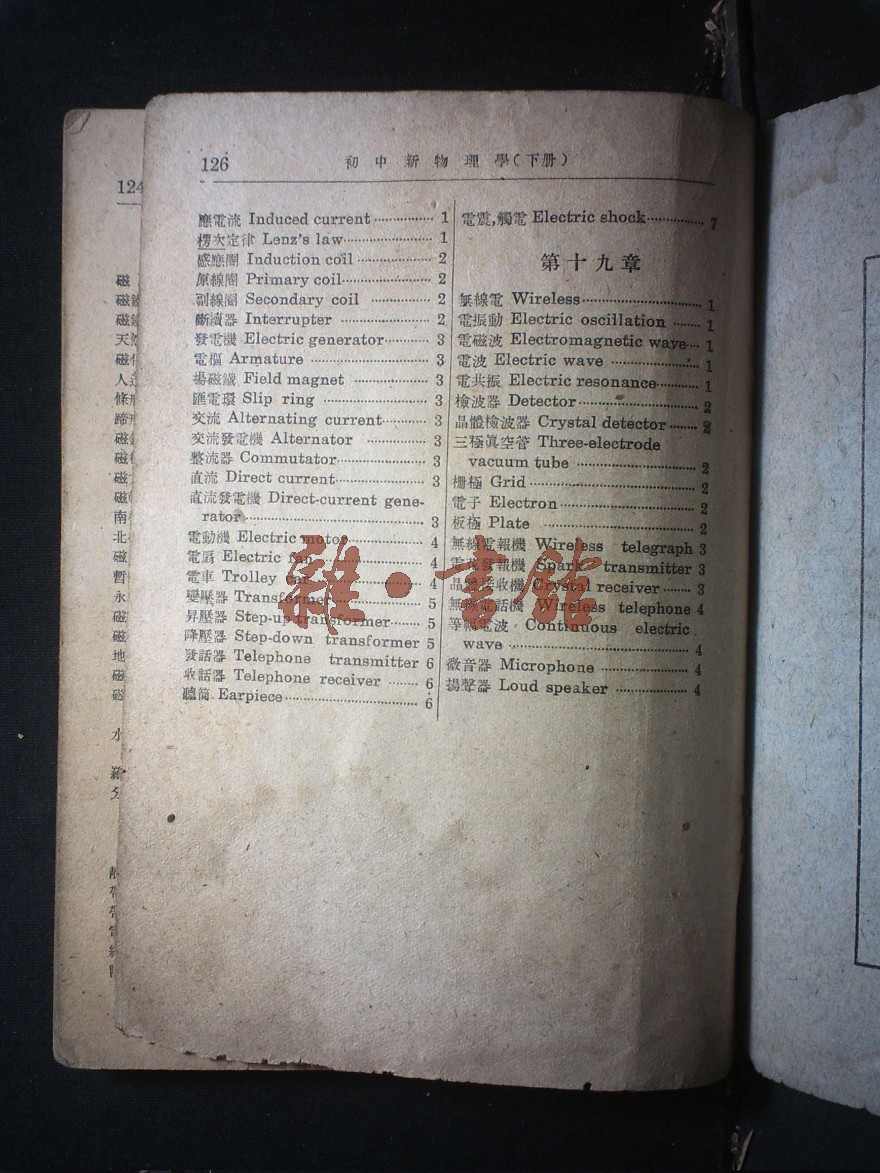 126
初中新物理學(下册)
應電流 Induced current 1
楞次定律 Lenz's law 1
感應圈 Induction coil 2
原線圈 Primary coil 2
副線圈 Secondary coil 2
斷續器 Interrupter 2
發電機 Electric generator 3
電樞 Armature 3
場磁鐵 Field magnet 3
匯電環 Slip ring 3
交流 Alternating current 3
交流發電機 Alternator 3
整流器 Commutator 3
直流 Direct current 3
直流發電機 Direct-current gene-
rator 3
電動機 Electric motor 4
電扇 Electric fan 4
電車 Trolley car 4
變壓器 Transformer 5
昇壓器 Step-up transformer 5
降壓器 Step-down transformer 5
發話器 Telephone transmitter 6
收話器 Telephone receiver 6
聽筒 Earpiece 6
電震,觸電 Electric shock 7
第十九章
無線電 Wireless 1
電振動 Electric oscillation 1
電磁波 Electromagnetic wave 1
電波 Electric wave 1
電共振 Electric resonance 1
檢波器 Detector 2
晶體檢波器 Crystal detector 2
三極眞空管 Three-electrode
vacuum tube 2
柵極 Grid 2
電子 Electron 2
板極 Plate 2
無線電報機 Wireless telegraph 3
電花發報機 Spark transmitter 3
晶體接收機 Crystal receiver 3
無線電話機 Wireless telephone 4
等幅電波 Continuous electric
wave 4
微音器 Microphone 4
揚聲器 Loud speaker 4
124
磁
磁
磁
天
磁
人
條
蹄
磁
磁
磁
磁
南
北
磁
暫
永
磁
磁
地
磁
磁
水
雜·書館